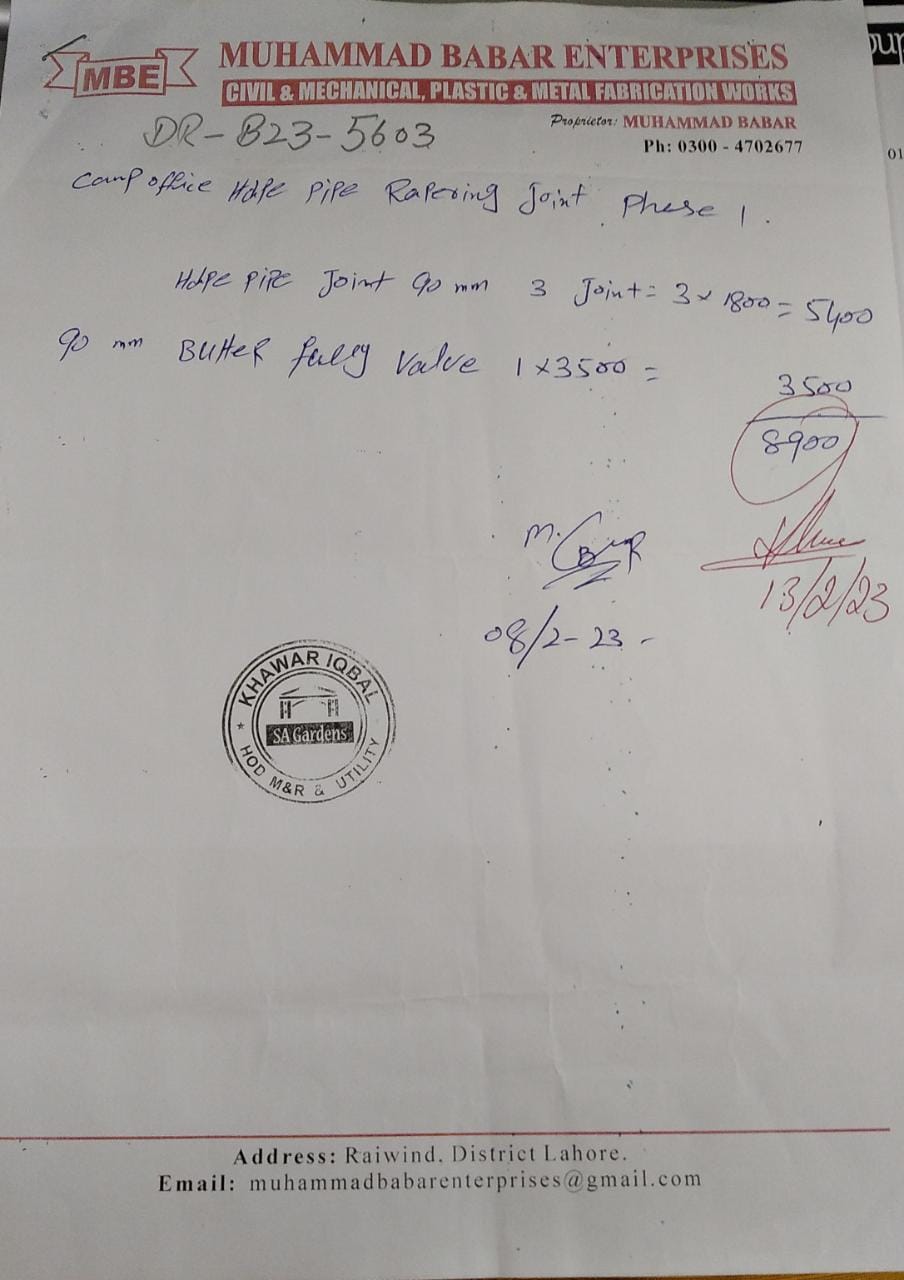 MBE
MUHAMMAD BABAR ENTERPRISES
CIVIL & MECHANICAL, PLASTIC & METAL FABRICATION WORKS
Proprietor: MUHAMMAD BABAR
Ph: 0300 - 4702677
DR-B23-5603
Camp office Hdpe Pipe Rapering Joint Phase 1.
Hdpe Pipe Joint 90 mm 3 Joint = 3 x 1800 = 5400
90 mm Butter fally Valve 1 x 3500 = 3500
8900
M.
13/2/23
08/2-23-
KHAWAR IQBAL
SA Gardens
HOD M&R & UTILITY
Address: Raiwind. District Lahore.
Email: muhammadbabarenterprises@gmail.com
01